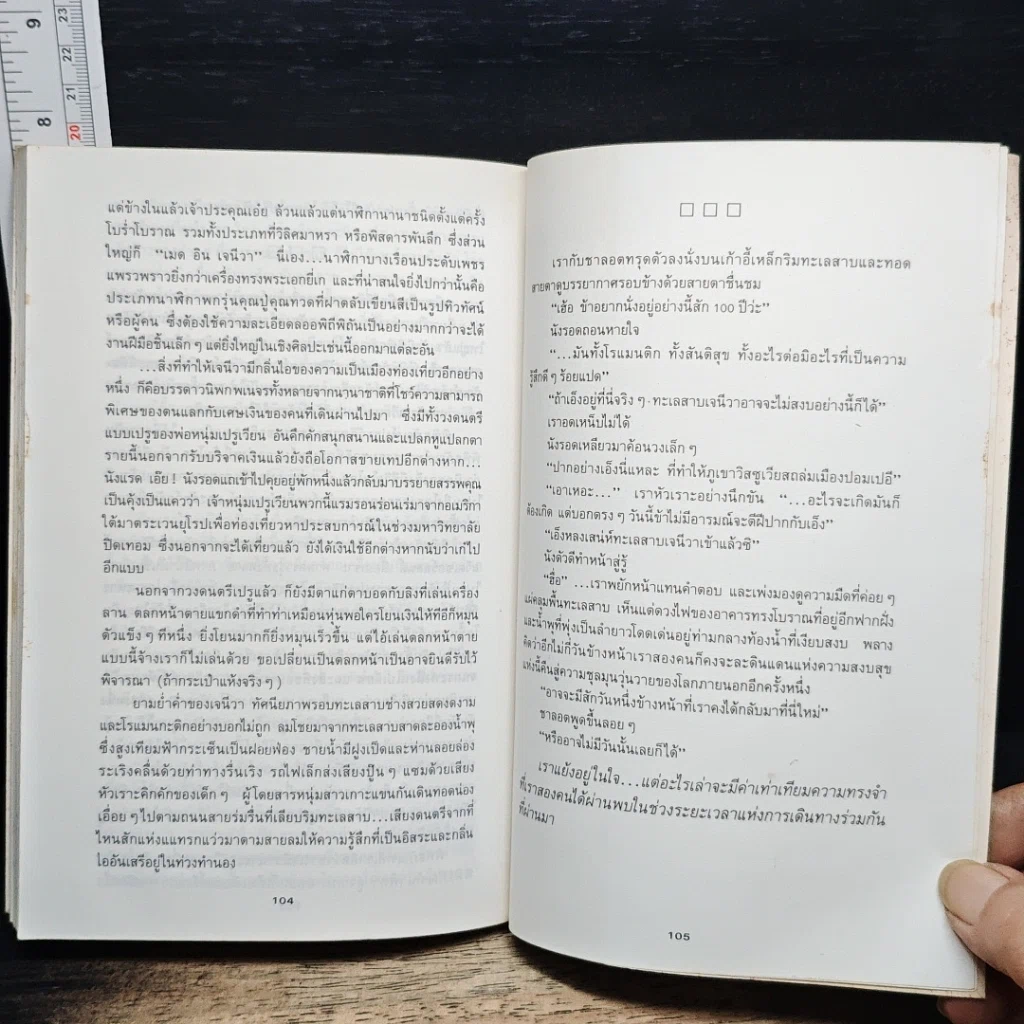 9
8
23
22
21
20
แต่ข้างในแล้วเจ้าประคุณเอ๋ย ล้วนแล้วแต่นาฬิกานานาชนิดตั้งแต่ครั้ง
โบร่ำโบราณ รวมทั้งประเภทที่วิลิศมาหรา หรือพิสดารพันลึก ซึ่งส่วน
ใหญ่ก็ “เมด อิน เจนีวา” นี่เอง...นาฬิกาบางเรือนประดับเพชร
แพรวพราวยิ่งกว่าเครื่องทรงพระเอกยี่เก และที่น่าสนใจยิ่งไปกว่านั้นคือ
ประเภทนาฬิกาพกรุ่นคุณปู่คุณทวดที่ฝาตลับเขียนสีเป็นรูปทิวทัศน์
หรือผู้คน ซึ่งต้องใช้ความละเอียดลออพิถีพิถันเป็นอย่างมากกว่าจะได้
งานฝีมือชิ้นเล็ก ๆ แต่ยิ่งใหญ่ในเชิงศิลปะเช่นนี้ออกมาแต่ละอัน
...สิ่งที่ทำให้เจนีวามีกลิ่นไอของความเป็นเมืองท่องเที่ยวอีกอย่าง
หนึ่ง ก็คือบรรดาวนิพกพเนจรทั้งหลายจากนานาชาติที่โชว์ความสามารถ
พิเศษของตนแลกกับเศษเงินของคนที่เดินผ่านไปมา ซึ่งมีทั้งวงดนตรี
แบบเปรูของพ่อหนุ่มเปรูเวียน อันคึกคักสนุกสนานและแปลกหูแปลกตา
รายนี้นอกจากรับบริจาคเงินแล้วยังถือโอกาสขายเทปอีกต่างหาก...
นังแรด เอ๊ย ! นังรอดแถเข้าไปคุยอยู่พักหนึ่งแล้วกลับมาบรรยายสรรพคุณ
เป็นคุ้งเป็นแควว่า เจ้าหนุ่มเปรูเวียนพวกนี้แรมรอนร่อนเร่มาจากอเมริกา
ใต้มาตระเวนยุโรปเพื่อท่องเที่ยวหาประสบการณ์ในช่วงมหาวิทยาลัย
ปิดเทอม ซึ่งนอกจากจะได้เที่ยวแล้ว ยังได้เงินใช้อีกต่างหากนับว่าเก๋ไป
อีกแบบ
นอกจากวงดนตรีเปรูแล้ว ก็ยังมีตาแก่ตาบอดกับลิงที่เล่นเครื่อง
ลาน ตลกหน้าตายแขกดำที่ทำท่าเหมือนหุ่นพอใครโยนเงินให้ทีอีก็หมุน
ตัวแข็ง ๆ ทีหนึ่ง ยิ่งโยนมากก็ยิ่งหมุนเร็วขึ้น แต่ไอ้เล่นตลกหน้าตาย
แบบนี้จ้างเราก็ไม่เล่นด้วย ขอเปลี่ยนเป็นตลกหน้าเป็นอาจยินดีรับไว้
พิจารณา (ถ้ากระเป๋าแห้งจริง ๆ )
ยามย่ำค่ำของเจนีวา ทัศนียภาพรอบทะเลสาบช่างสวยสดงดงาม
และโรแมนกะติกอย่างบอกไม่ถูก ลมโชยมาจากทะเลสาบสาดละอองน้ำพุ
ซึ่งสูงเทียมฟ้ากระเซ็นเป็นฝอยฟ่อง ชายน้ำมีฝูงเป็ดและห่านลอยล่อง
ระเริงคลื่นด้วยท่าทางรื่นเริง รถไฟเล็กส่งเสียงปู๊น ๆ แซมด้วยเสียง
หัวเราะคิกคักของเด็ก ๆ ผู้โดยสารหนุ่มสาวเกาะแขนกันเดินทอดน่อง
เอื่อย ๆ ไปตามถนนสายร่มรื่นที่เลียบริมทะเลสาบ...เสียงดนตรีจากที่
ไหนสักแห่งแแทรกแว่วมาตามสายลมให้ความรู้สึกที่เป็นอิสระและกลิ่น
ไออันเสรีอยู่ในท่วงทำนอง
104
□ □ □
เรากับชาลอดทรุดตัวลงนั่งบนเก้าอี้เหล็กริมทะเลสาบและทอด
สายตาดูบรรยากาศรอบข้างด้วยสายตาชื่นชม
“เฮ้อ ข้าอยากนั่งอยู่อย่างนี้สัก 100 ปีว่ะ”
นังรอดถอนหายใจ
“...มันทั้งโรแมนติก ทั้งสันติสุข ทั้งอะไรต่อมิอะไรที่เป็นความ
รู้สึกดี ๆ ร้อยแปด”
“ถ้าเอ็งอยู่ที่นี่จริง ๆ ทะเลสาบเจนีวาอาจจะไม่สงบอย่างนี้ก็ได้”
เราอดเหน็บไม่ได้
นังรอดเหลียวมาค้อนวงเล็ก ๆ
“ปากอย่างเอ็งนี่แหละ ที่ทำให้ภูเขาวิสซูเวียสถล่มเมืองปอมเปอี”
“เอาเหอะ...” เราหัวเราะอย่างนึกขัน “...อะไรจะเกิดมันก็
ต้องเกิด แต่บอกตรง ๆ วันนี้ข้าไม่มีอารมณ์จะตีฝีปากกับเอ็ง”
“เอ็งหลงเสน่ห์ทะเลสาบเจนีวาเข้าแล้วซิ”
นังตัวดีทำหน้าสู่รู้
“ฮื่อ” ...เราพยักหน้าแทนคำตอบ และเพ่งมองดูความมืดที่ค่อย ๆ
แผ่คลุมพื้นทะเลสาบ เห็นแต่ดวงไฟของอาคารทรงโบราณที่อยู่อีกฟากฝั่ง
และน้ำพุที่พุ่งเป็นลำยาวโดดเด่นอยู่ท่ามกลางท้องน้ำที่เงียบสงบ พลาง
คิดว่าอีกไม่กี่วันข้างหน้าเราสองคนก็คงจะละดินแดนแห่งความสงบสุข
แห่งนี้คืนสู่ความชุลมุนวุ่นวายของโลกภายนอกอีกครั้งหนึ่ง
“อาจจะมีสักวันหนึ่งข้างหน้าที่เราคงได้กลับมาที่นี่ใหม่”
ชาลอดพูดขึ้นลอย ๆ
“หรืออาจไม่มีวันนั้นเลยก็ได้”
เราแย้งอยู่ในใจ...แต่อะไรเล่าจะมีค่าเท่าเทียมความทรงจำ
ที่เราสองคนได้ผ่านพบในช่วงระยะเวลาแห่งการเดินทางร่วมกัน
ที่ผ่านมา
105